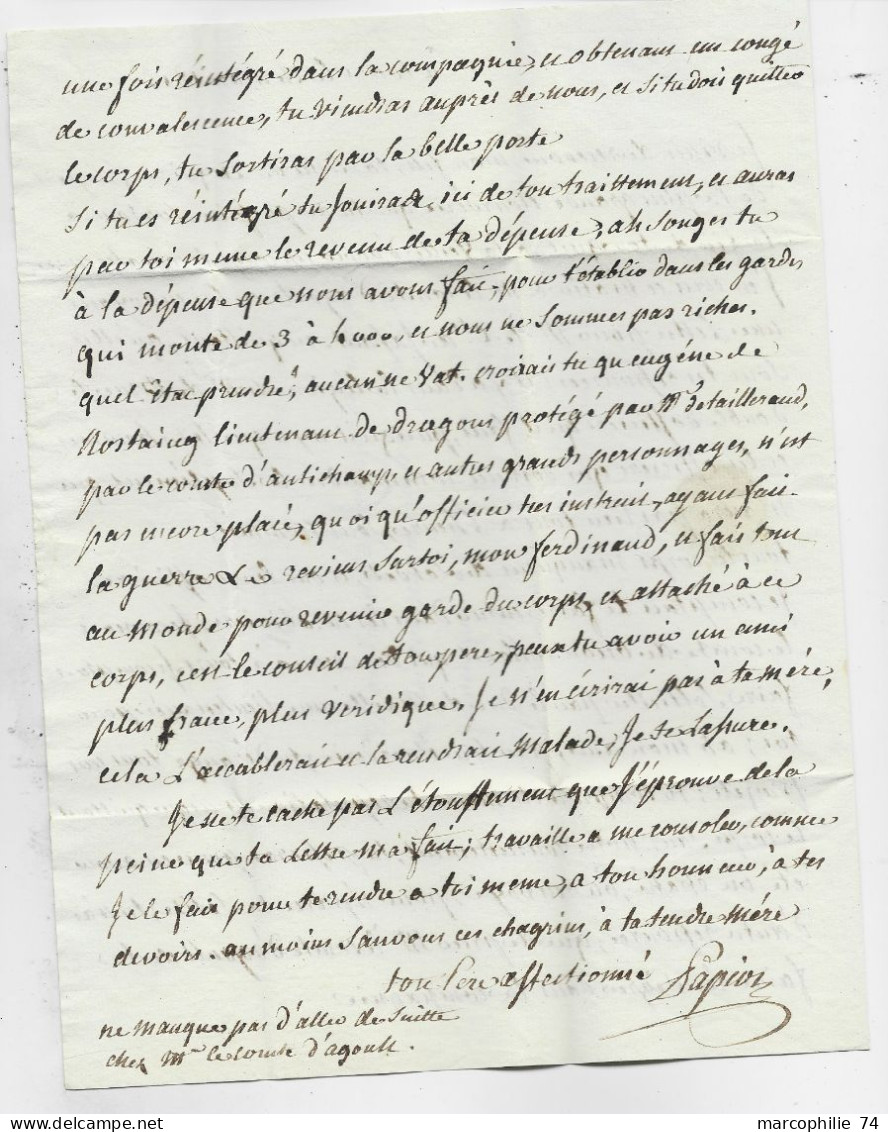 une fois réintégré dans la compagnie, et obtenant un congé
de convalescence, tu viendras auprès de nous, et si tu dois quitter
le corps, tu sortiras par la belle porte
si tu es réintégré tu jouiras, ici de ton traittement, et auras
par toi meme le revenu de ta dépense, ah songes tu
à la dépense que nous avons fait, pour t'établir dans les gardes
qui monte de 3 à 4000, et nous ne sommes pas riches.
quel état prendre, aucun ne vat. croirais tu qu eugéne de
Rostaing lieutenant de dragons protégé par Mr de taillerand,
par le comte d'autichamp, et autres grands personnages, n'est
pas encore placé, quoi qu'officier tres instruit, ayant fait
la guerre reviens sur toi, mon ferdinand, et fais tout
au monde pour revenir garde du corps, et attaché à ce
corps, c'est le conseil de ton pere, peux tu avoir un ami
plus franc, plus veridique. Je n'en écrirai pas à ta mére,
cela l'accablerait et la rendrait malade, Je te l'assure.
Je ne te cache pas l'étouffement que J'éprouve de la
peine que ta lettre m'a fait; travaille a me consoler, comme
Je le fais pour te rendre a toi meme, a ton honneur, à tes
devoirs. au moins sauvons ces chagrins, à ta tendre mére
ton Pere affectionné Papion
ne manque pas d'aller de suitte
chez Mr le comte d'agoult.
marcophilie 74